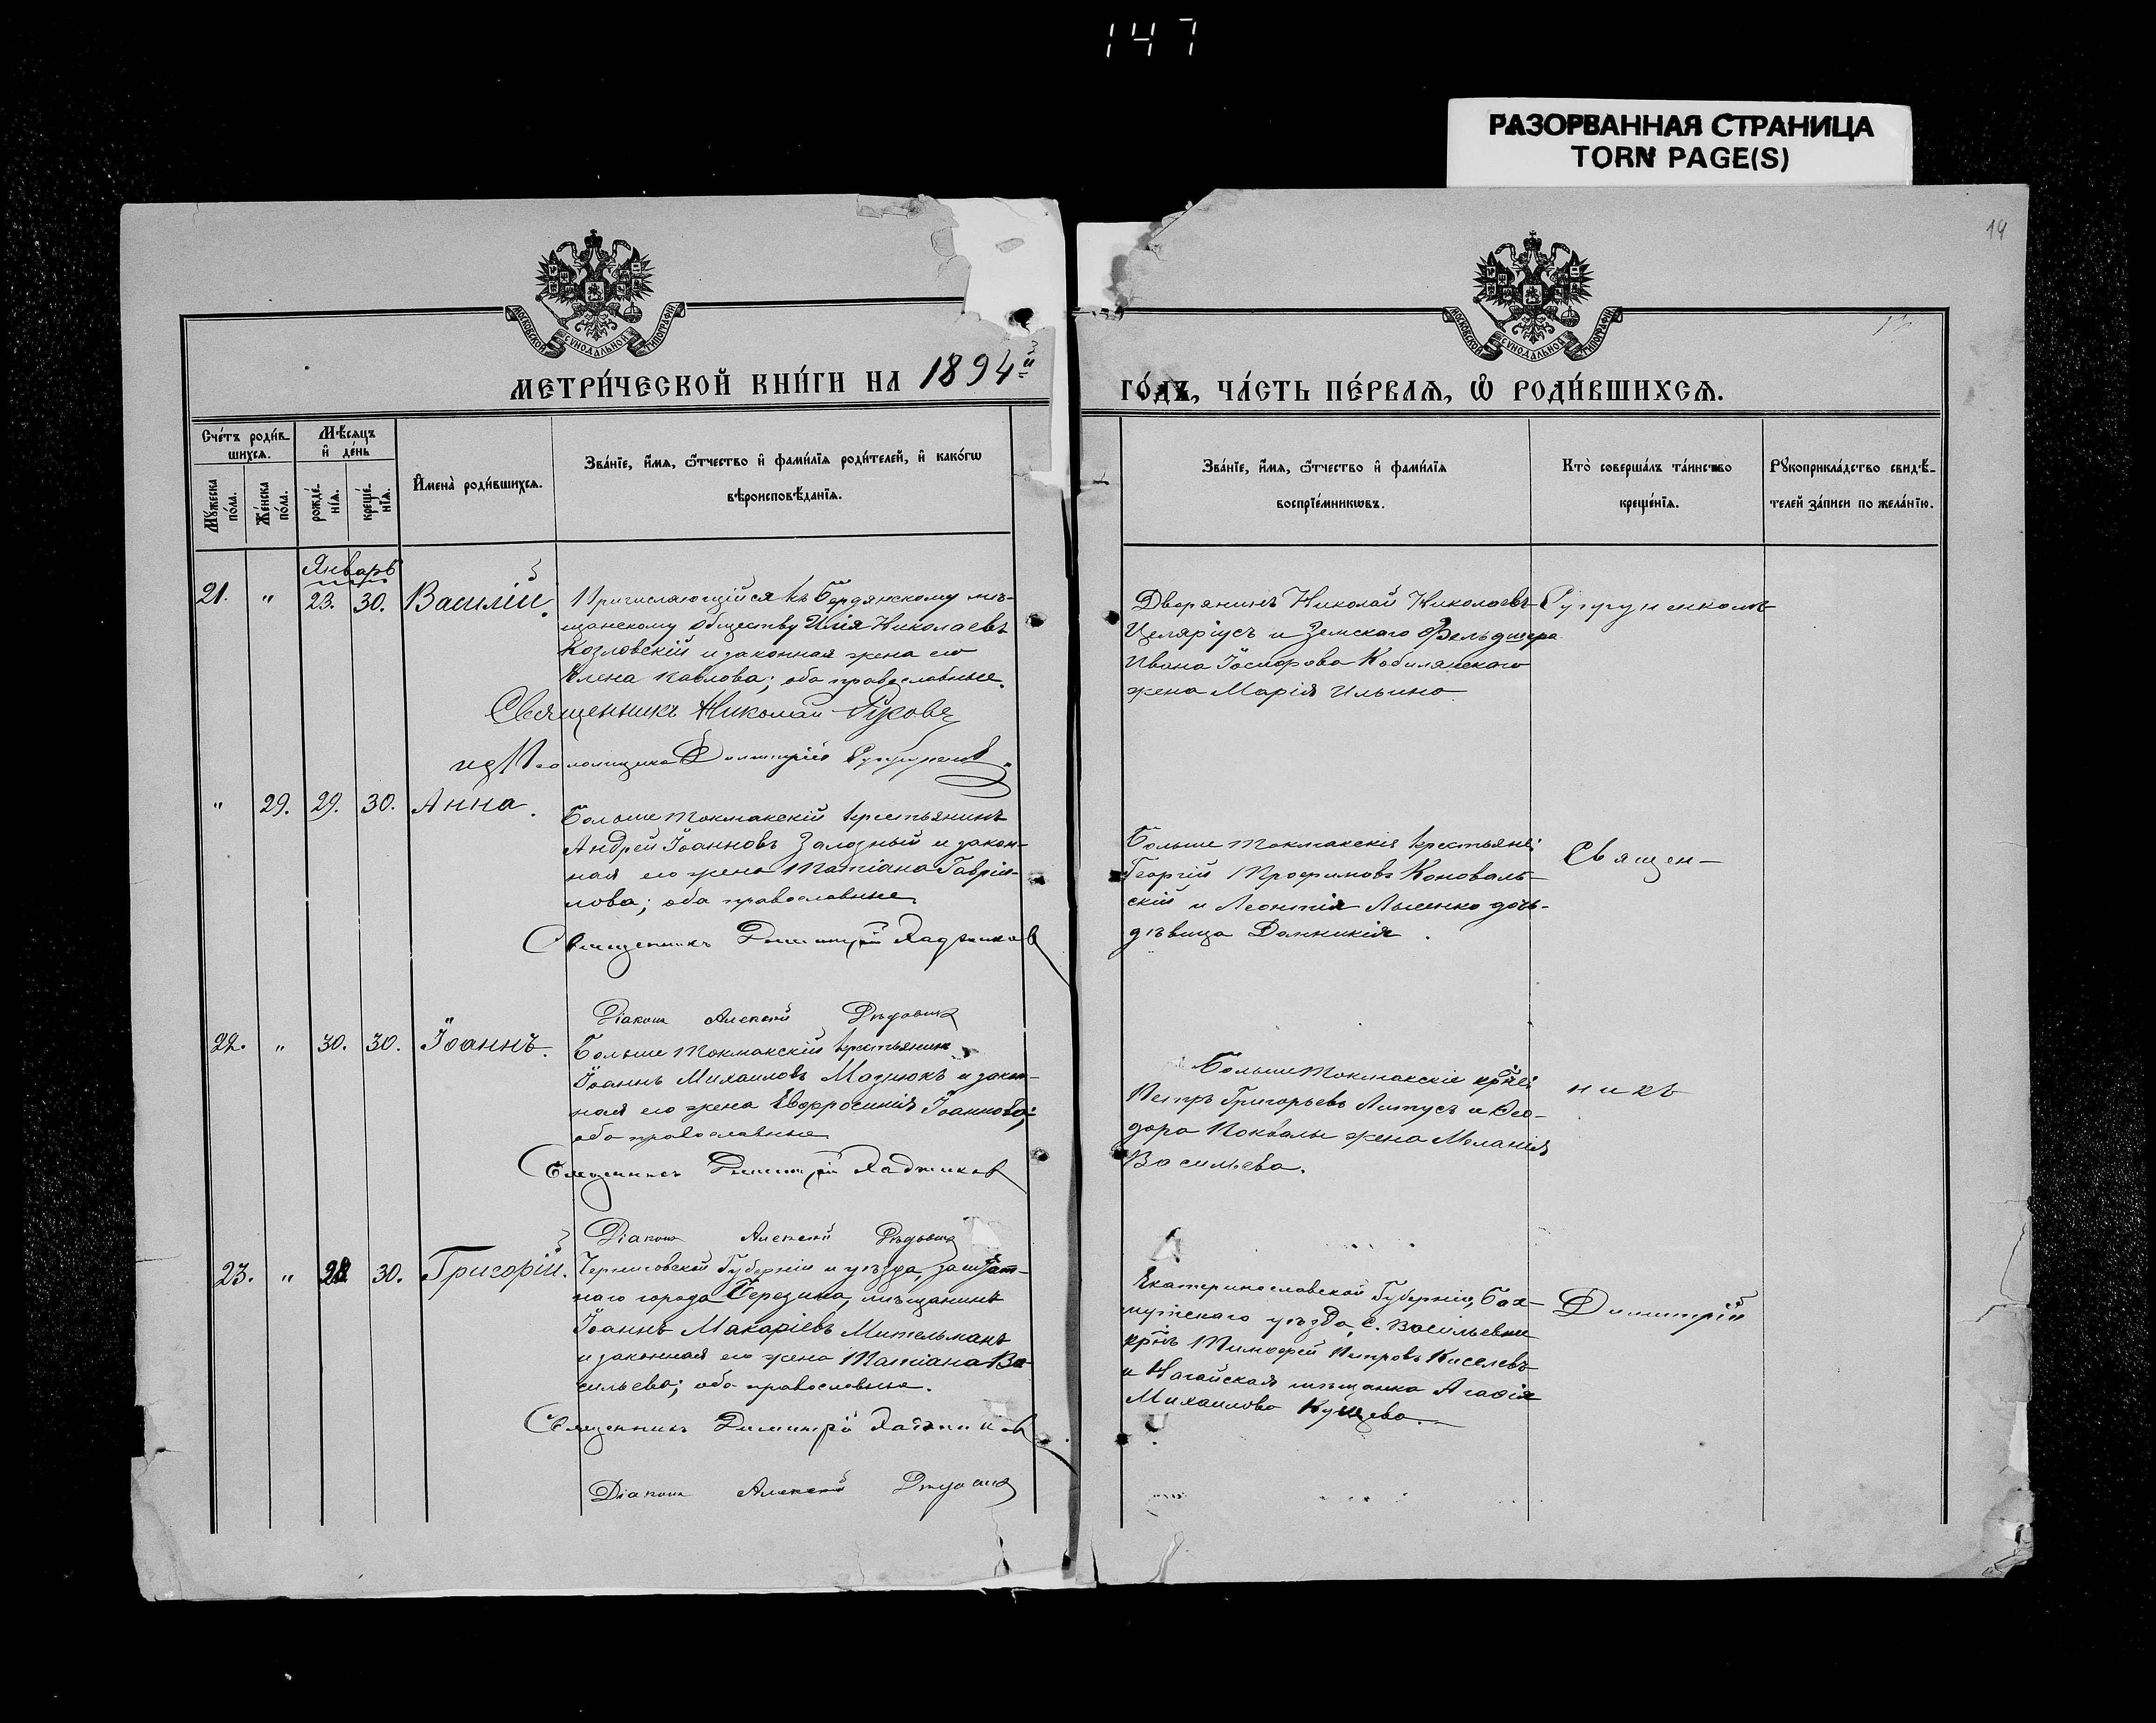 147
РАЗОРВАННАЯ СТРАНИЦА
TORN PAGE(S)
14
МОСКОВСКОЙ СѴНОДАЛЬНОЙ ТИПОГРАФІИ
МОСКОВСКОЙ СѴНОДАЛЬНОЙ ТИПОГРАФІИ
МЕТРИ́ЧЕСКОЙ КНИ́ГИ НА 1894й
ГО́ДЪ, ЧА́СТЬ ПЕ́РВАѦ, Ѡ҆ РОДИ́ВШИХСѦ.
Сче́тъ роди́в-
шихсѧ.
Мѣ́сѧцъ
и҆ де́нь
Мꙋ́жеска
по́ла.
Же́нска
по́ла.
рожде́-
нїѧ.
креще́-
нїѧ.
И҆мена̀ роди́вшихсѧ.
Зва́нїе, и҆́мѧ, ѻ҆́тчество и҆ фами́лїѧ роди́телей, и҆ како́гѡ
вѣроисповѣ́данїѧ.
Зва́нїе, и҆́мѧ, ѻ҆́тчество и҆ фами́лїѧ
воспрїе́мникѡвъ.
Кто̀ соверша́лъ та́инство
креще́нїѧ.
Рꙋкоприкла́дство свидѣ́-
телей за́писи по жела́нїю.
Январь
21. " 23. 30. Василій.
Причисляющійся къ Бердянскому мѣ-
щанскому обществу Илія Николаевъ
Козловскій и законная жена его
Елена Павлова; оба православные.
Священникъ Николай
Димитрій
Дворянинъ Николай Николаевъ
Целяріусъ и Земскаго Фельдшера
Ивана Іосифова Кобилянскаго
жена Марія Ильина
" 29. 29. 30. Анна.
Больше Токмакскій крестьянинъ
Андрей Іоанновъ Залозный и закон-
ная его жена Татіана Гаврии-
лова; оба православные
Священникъ Димитрій Хаджиновъ
Діаконъ Алексій
Больше Токмакскія крестьяне:
Георгій Трофимовъ Коноваль-
скій и Леонтія дочь-
дѣвица Домникія.
Священ-
22. " 30. 30. Іоаннъ.
Больше Токмакскій крестьянинъ
Іоаннъ Михаиловъ Мазнюкъ и закон-
ная его жена Евфросинія Іоаннова;
оба православные
Священникъ Димитрій Хаджиновъ
Діаконъ Алексій
Больше Токмакскіе кр-не:
Петръ Григорьевъ и Ѳео-
дора жена Меланія
Васильева.
никъ
23. " 28 30. Григорій.
Черниговской Губерніи и уѣзда, заштат-
наго города Березина, мѣщанинъ
Іоаннъ Макаріевъ Мительманъ
и законная его жена Татіана Ва-
сильева; оба православные.
Священникъ Димитрій Хаджиновъ
Діаконъ Алексій
Екатеринославской Губерніи, Бах-
мутскаго уѣзда, с. Васильевки
кр-нъ Тимоѳей Петровъ Киселевъ
и Ногайская мѣщанка Агаѳія
Михаилова
Димитрій